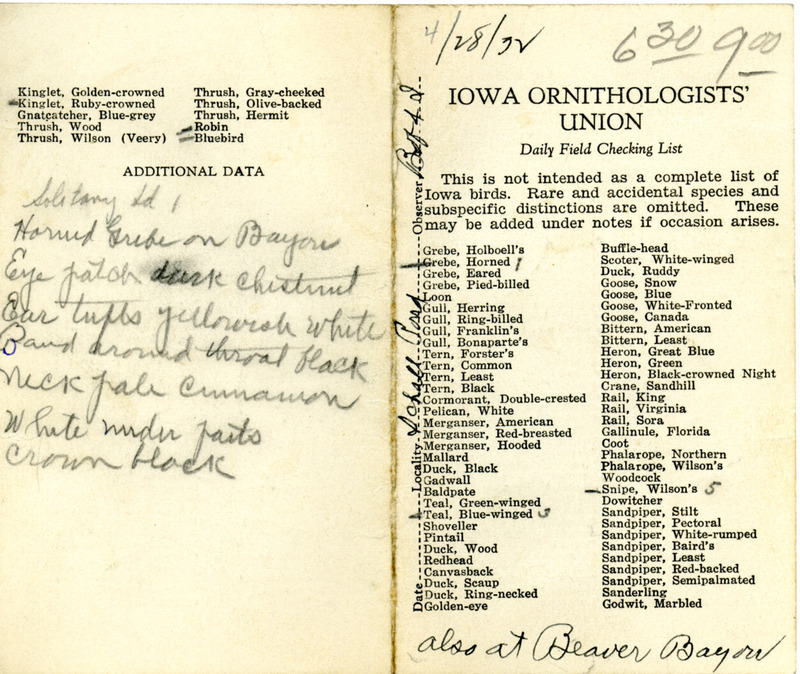 Kinglet, Golden-crowned
Kinglet, Ruby-crowned
Gnatcatcher, Blue-grey
Thrush, Wood
Thrush, Wilson (Veery)
Thrush, Gray-cheeked
Thrush, Olive-backed
Thrush, Hermit
Robin
Bluebird
ADDITIONAL DATA
Solitary Sd 1
Horned Grebe on Bayou
Eye patch dark chestnut
Ear tufts yellowish white
Band around throat black
Neck pale cinnamon
White under parts
Crown black
4/28/32
6 30 9 00
IOWA ORNITHOLOGISTS'
UNION
Daily Field Checking List
This is not intended as a complete list of
Iowa birds. Rare and accidental species and
subspecific distinctions are omitted. These
may be added under notes if occasion arises.
Date Locality Observer
Grebe, Holboell's
Grebe, Horned 1
Grebe, Eared
Grebe, Pied-billed
Loon
Gull, Herring
Gull, Ring-billed
Gull, Franklin's
Gull, Bonaparte's
Tern, Forster's
Tern, Common
Tern, Least
Tern, Black
Cormorant, Double-crested
Pelican, White
Merganser, American
Merganser, Red-breasted
Merganser, Hooded
Mallard
Duck, Black
Gadwall
Baldpate
Teal, Green-winged
Teal, Blue-winged 3
Shoveller
Pintail
Duck, Wood
Redhead
Canvasback
Duck, Scaup
Duck, Ring-necked
Golden-eye
Buffle-head
Scoter, White-winged
Duck, Ruddy
Goose, Snow
Goose, Blue
Goose, White-Fronted
Goose, Canada
Bittern, American
Bittern, Least
Heron, Great Blue
Heron, Green
Heron, Black-crowned Night
Crane, Sandhill
Rail, King
Rail, Virginia
Rail, Sora
Gallinule, Florida
Coot
Phalarope, Northern
Phalarope, Wilson's
Woodcock
Snipe, Wilson's 5
Dowitcher
Sandpiper, Stilt
Sandpiper, Pectoral
Sandpiper, White-rumped
Sandpiper, Baird's
Sandpiper, Least
Sandpiper, Red-backed
Sandpiper, Semipalmated
Sanderling
Godwit, Marbled
also at Beaver Bayou